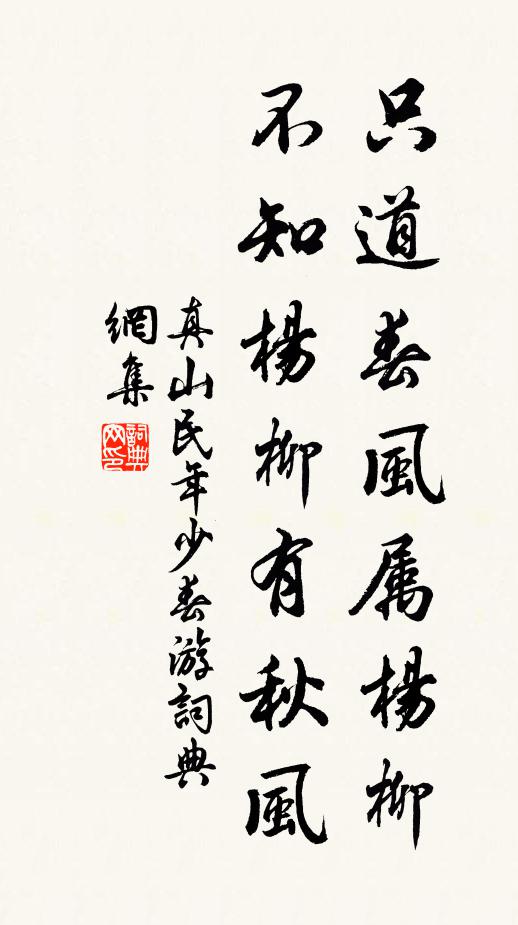 只道春風属楊柳
不知楊柳有秋風
真山民年少春游詞典
網集
詞典
网印